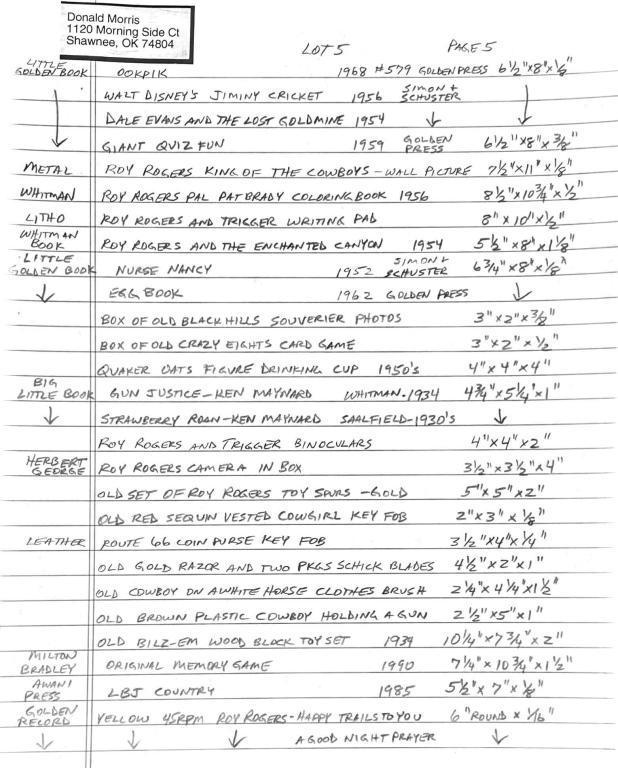 Donald Morris
1120 Morning Side Ct
Shawnee, OK 74804
LOT 5 PAGE 5
LITTLE GOLDEN BOOK OOKPIK 1968 #579 GOLDEN PRESS 6½"x8"x⅛"
WALT DISNEY'S JIMINY CRICKET 1956 SIMON + SCHUSTER
DALE EVANS AND THE LOST GOLDMINE 1954 ↓
GIANT QUIZ FUN 1959 GOLDEN PRESS 6½"x8"x⅜"
METAL ROY ROGERS KING OF THE COWBOYS - WALL PICTURE 7½"x11"x⅛"
WHITMAN ROY ROGERS PAL PAT BRADY COLORING BOOK 1956 8½"x10¾"x½"
LITHO ROY ROGERS AND TRIGGER WRITING PAD 8"x10"x½"
WHITMAN BOOK ROY ROGERS AND THE ENCHANTED CANYON 1954 5½"x8"x1⅛"
LITTLE GOLDEN BOOK NURSE NANCY 1952 SIMON + SCHUSTER 6¾"x8"x⅛"
↓ EGG BOOK 1962 GOLDEN PRESS ↓
BOX OF OLD BLACK HILLS SOUVERIER PHOTOS 3"x2"x⅜"
BOX OF OLD CRAZY EIGHTS CARD GAME 3"x2"x½"
QUAKER OATS FIGURE DRINKING CUP 1950's 4"x4"x4"
BIG LITTLE BOOK GUN JUSTICE - KEN MAYNARD WHITMAN - 1934 4¾"x5¼"x1"
↓ STRAWBERRY ROAN - KEN MAYNARD SAALFIELD - 1930's ↓
ROY ROGERS AND TRIGGER BINOCULARS 4"x4"x2"
HERBERT GEORGE ROY ROGERS CAMERA IN BOX 3½"x3½"x4"
OLD SET OF ROY ROGERS TOY SPURS - GOLD 5"x5"x2"
OLD RED SEQUIN VESTED COWGIRL KEY FOB 2"x3"x⅛"
LEATHER ROUTE 66 COIN PURSE KEY FOB 3½"x4"x¼"
OLD GOLD RAZOR AND TWO PKGS SCHICK BLADES 4½"x2"x1"
OLD COWBOY ON A WHITE HORSE CLOTHES BRUSH 2¼"x4¼"x1½"
OLD BROWN PLASTIC COWBOY HOLDING A GUN 2½"x5"x1"
OLD BILZ-EM WOOD BLOCK TOY SET 1939 10¼"x7¾"x2"
MILTON BRADLEY ORIGINAL MEMORY GAME 1990 7¼"x10¾"x1½"
AWANI PRESS LBJ COUNTRY 1985 5½"x7"x⅛"
GOLDEN RECORD YELLOW 45RPM ROY ROGERS - HAPPY TRAILS TO YOU 6" ROUND x 1/16"
↓ ↓ ↓ A GOOD NIGHT PRAYER ↓